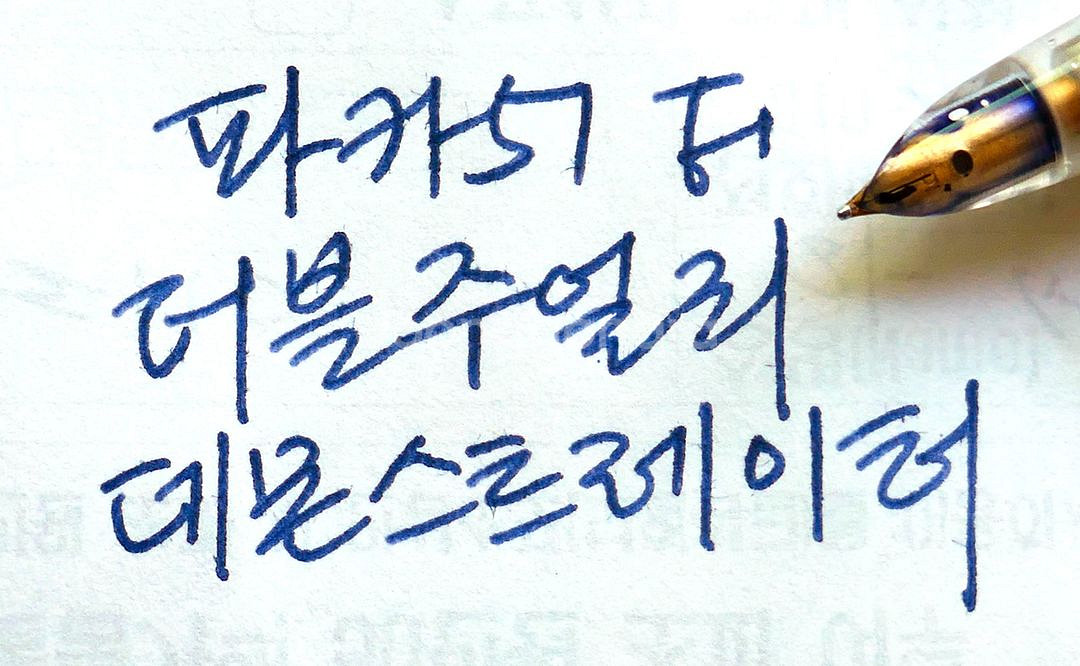 파카51 더
더블 주얼리
데몬스트레이터